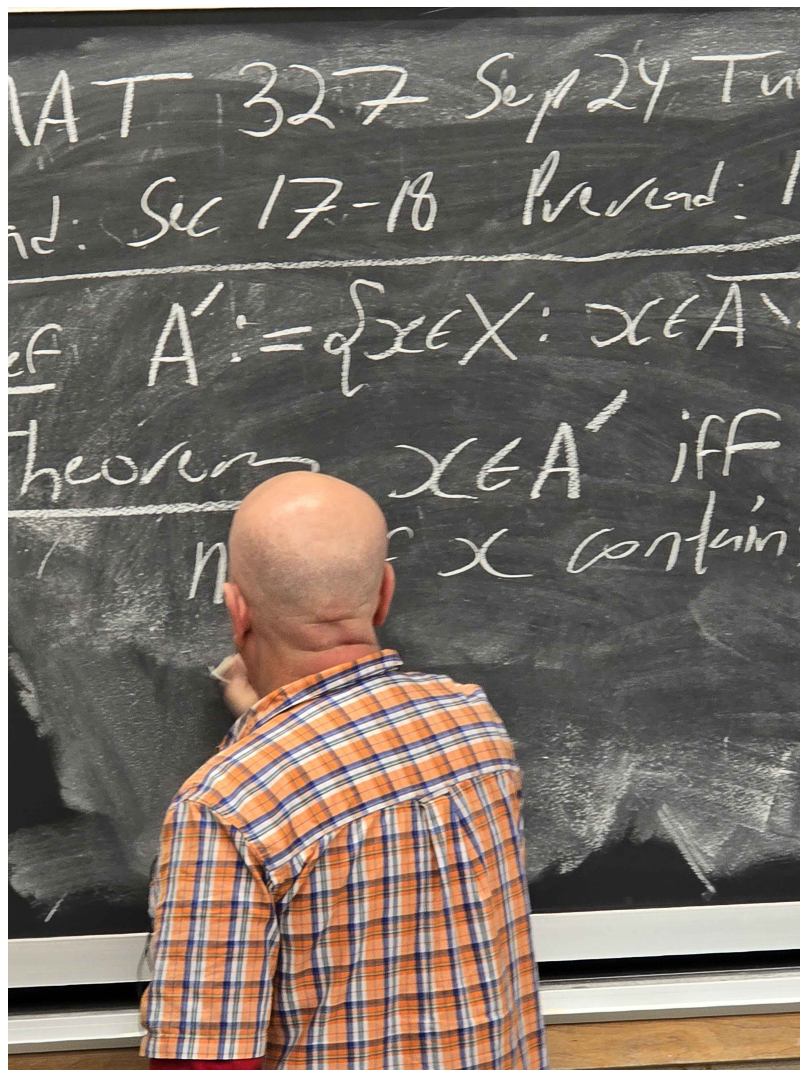 MAT 327 Sep 24 Tu
ad: Sec 17-18 Preread: 1
ef A′ := {x∈X: x∈A̅\
Theorem x∈A′ iff
x contain